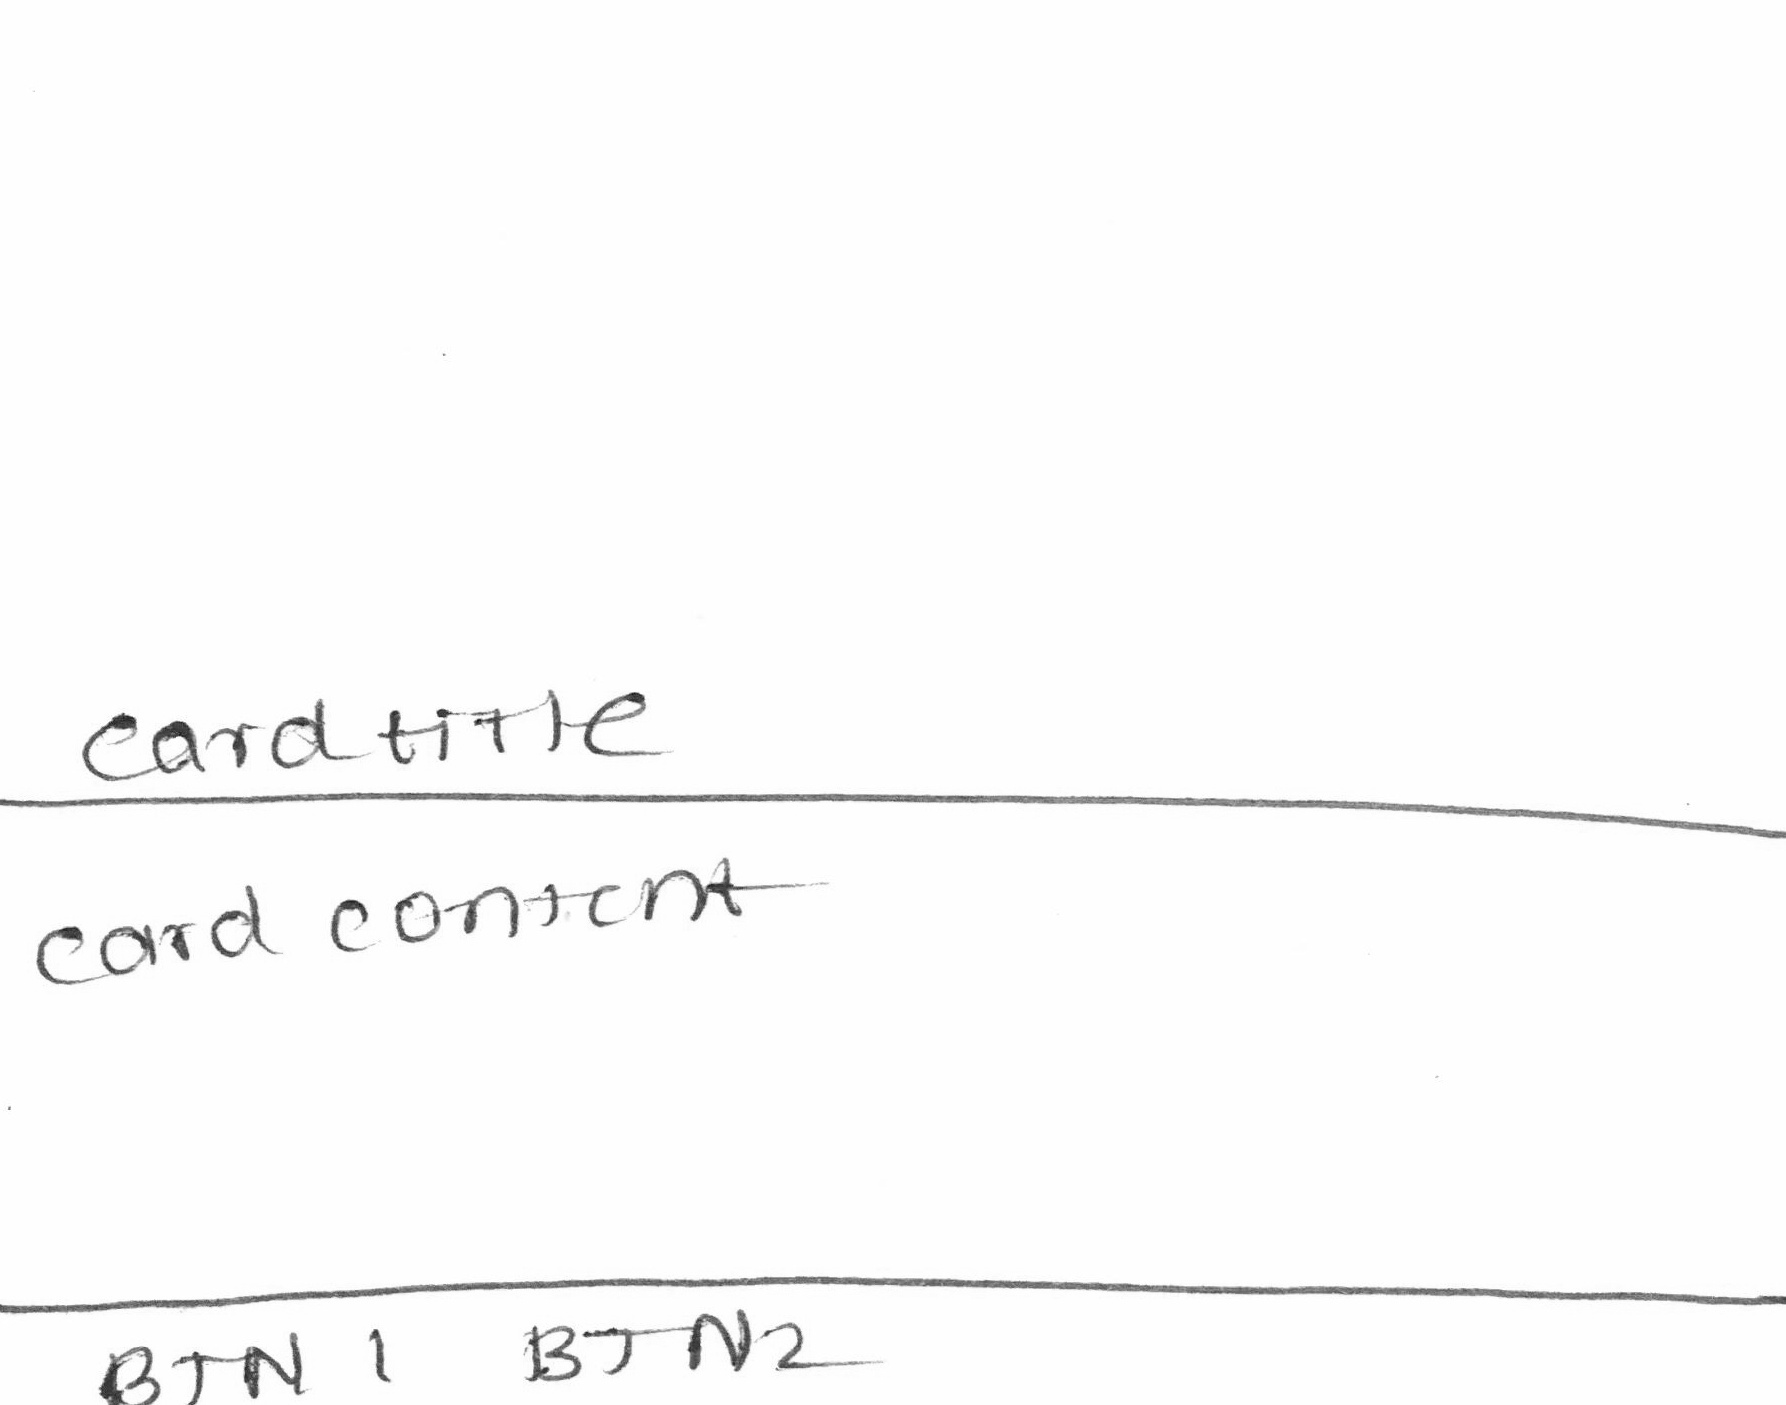 card title
card content
BTN 1 BTN2